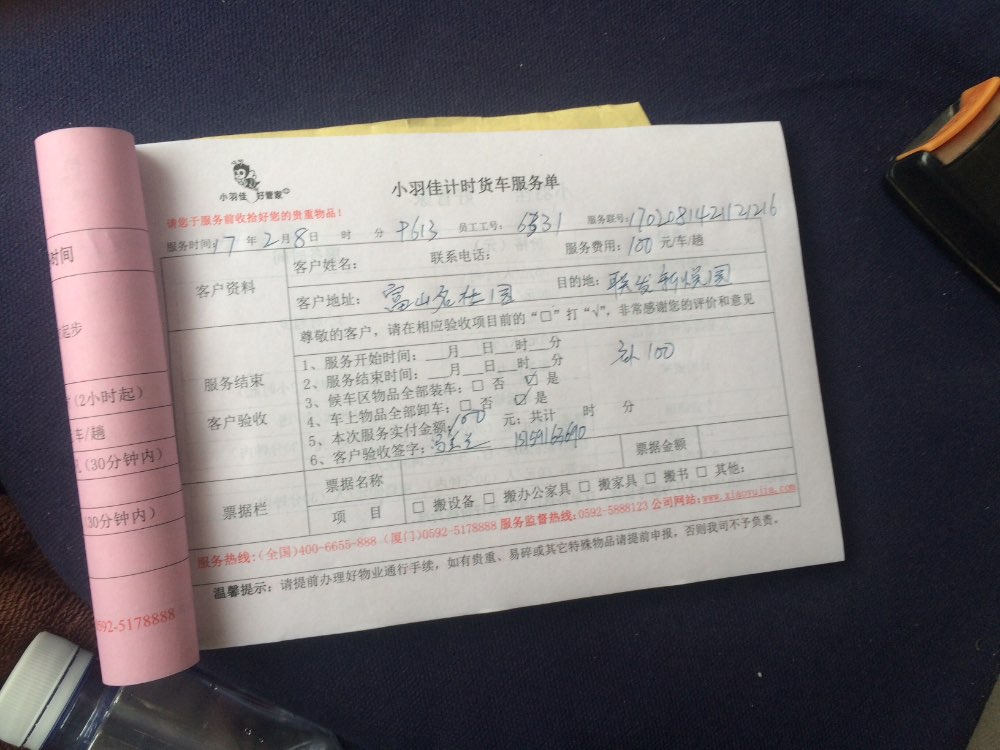 小羽佳 好管家
小羽佳计时货车服务单
请您于服务前收拾好您的贵重物品!
服务时间: 17 年 2 月 8 日 时 分 员工工号: 服务联号:
客户资料
客户姓名: 联系电话: 服务费用: 100 元/车/趟
客户地址: 富山名仕园 目的地: 联发新悦园
服务结束
客户验收
尊敬的客户，请在相应验收项目前的“□”打“√”，非常感谢您的评价和意见
1、服务开始时间: ___月___日___时___分
2、服务结束时间: ___月___日___时___分
3、候车区物品全部装车: □ 否 ☑ 是
4、车上物品全部卸车: □ 否 ☑ 是
5、本次服务实付金额: 100 元; 共计 时 分
6、客户验收签字:
100
票据栏
票据名称 票据金额
项 目 □ 搬设备 □ 搬办公家具 □ 搬家具 □ 搬书 □ 其他:
服务热线:(全国)400-6655-888 (厦门)0592-5178888 服务监督热线:0592-5888123 公司网站:www.xiaoyujia.com
温馨提示: 请提前办理好物业通行手续，如有贵重、易碎或其它特殊物品请提前申报，否则我司不予负责。
时间
起步
(2小时起)
车/趟
(30分钟内)
(30分钟内)
592-5178888